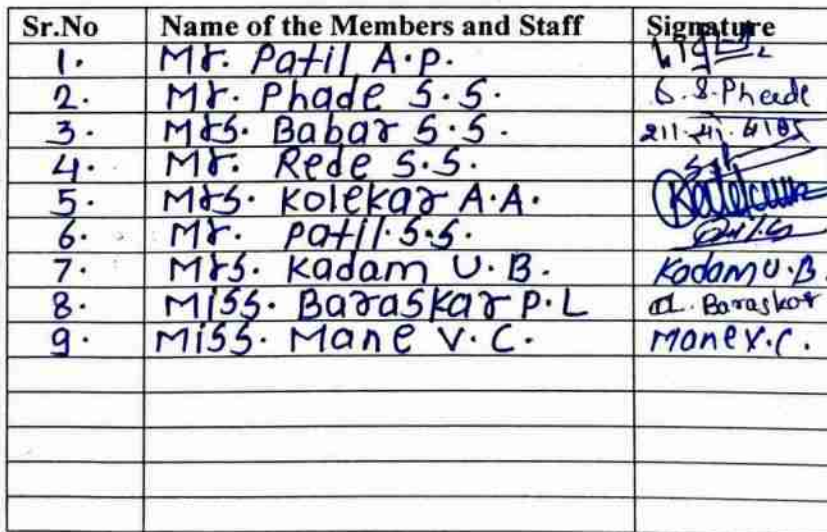 Sr.No Name of the Members and Staff Signature
1. Mr. Patil A.P.
2. Mr. Phade S.S. S.S.Phade
3. Mrs. Babar S.S.
4. Mr. Rede S.S.
5. Mrs. Kolekar A.A.
6. Mr. Patil.S.S.
7. Mrs. Kadam U.B. Kadam U.B.
8. Miss. Baraskar P.L Baraskar
9. Miss. Mane V.C. Mane V.C.